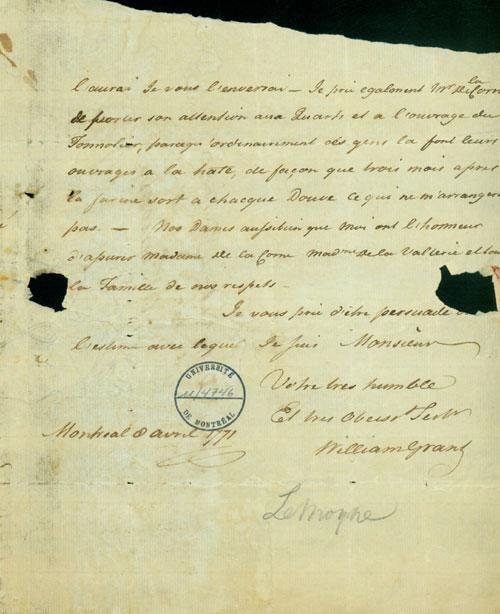 l'aurai Je vous l'enverrai — Je prie egalement Mr. de la Corne
de porter son attention aux Quarts et a l'ouvrage du
Tonnelier, parcequ'ordinairement ces gens la font leurs
ouvrages a la hate, de façon que trois mois apres
la farine sort a chacque Douve ce qui ne m'arrangera
pas. — Nos Dames aussi bien que moi ont l'honneur
d'assurer Madame de la Corne Madme de la Vallerie et tou
la Famille de nos respets —
Je vous prie d'être persuade
l'estim avec lequel Je suis Monsieur
Vôtre tres humble
Et tres Obeisst Servr
William Grant
Montreal 8 avril 1771
UNIVERSITÉ
11/4746
DE MONTRÉAL
LeMoyne